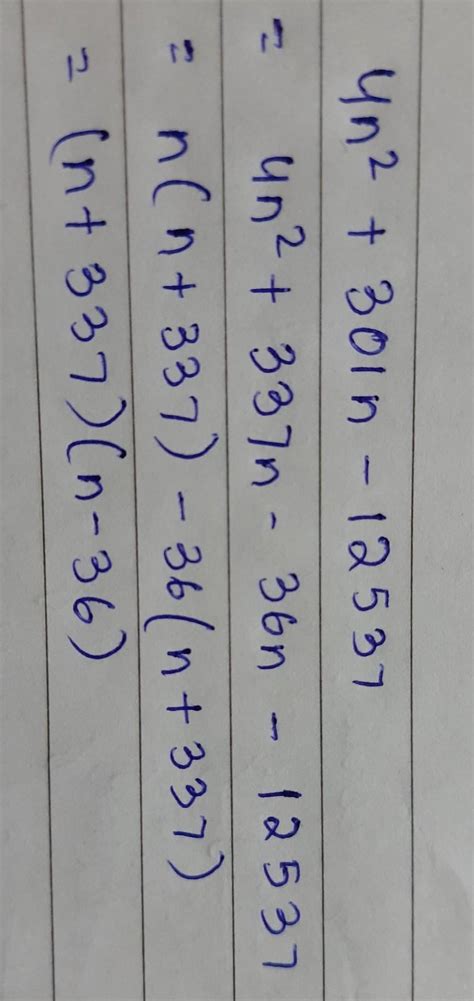 4n² + 301n - 12537
= 4n² + 337n - 36n - 12537
= n(n+337) - 36(n+337)
= (n+337)(n-36)